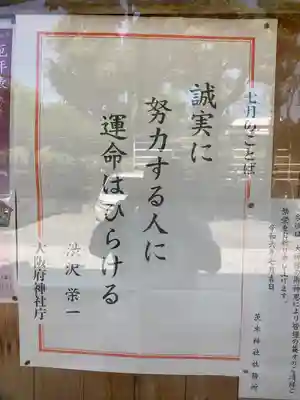 七月のことば
誠実に
努力する人に
運命はひらける
渋沢 栄一
大阪府神社庁
令和六年七月吉日
茨木神社社務所